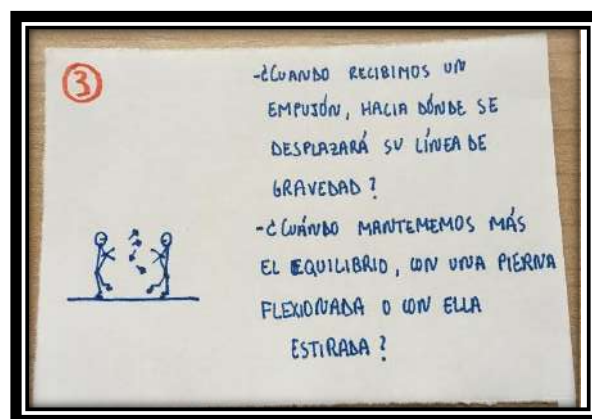 3
-¿CUANDO RECIBIMOS UN
EMPUJÓN, HACIA DÓNDE SE
DESPLAZARÁ SU LÍNEA DE
GRAVEDAD?
-¿CUÁNDO MANTEMEMOS MÁS
EL EQUILIBRIO, CON UNA PIERNA
FLEXIONADA O CON ELLA
ESTIRADA?